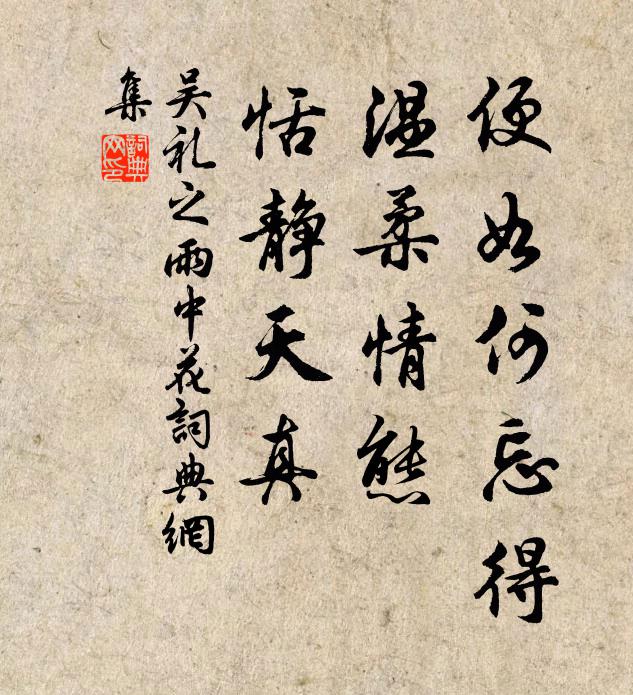 便如何忘得
温柔情態
恬靜天真
吴礼之雨中花詞典網
集
詞典網印